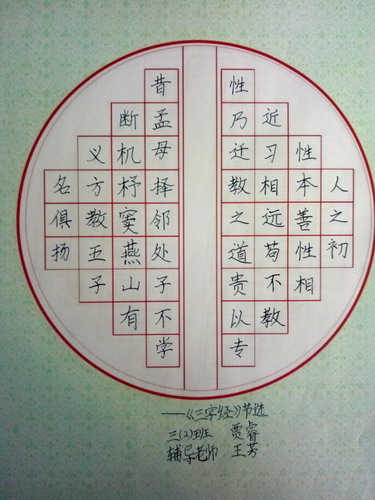 人之初
性本善性相
近习相远苟不教
性乃迁教之道贵以专
昔孟母择邻处子不学
断机杼窦燕山有
义方教五子
名俱扬
——《三字经》节选
三(2)班 贾睿
辅导老师 王芳